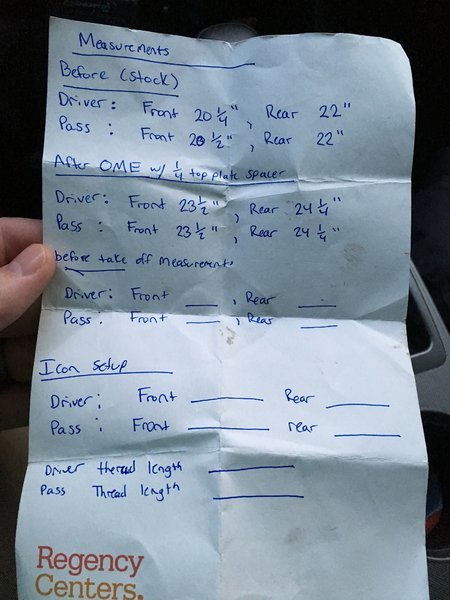 Measurements
Before (stock)
Driver: Front 20 1/4", Rear 22"
Pass: Front 20 1/2", Rear 22"
After OME w/ 1/4 top plate spacer
Driver: Front 23 1/2", Rear 24 1/4"
Pass: Front 23 1/2", Rear 24 1/4"
before take off measurements
Driver: Front ___, Rear ___
Pass: Front ___, Rear ___
Icon setup
Driver: Front ___ Rear ___
Pass: Front ___ rear ___
Driver thread length ___
Pass Thread length ___
Regency
Centers.